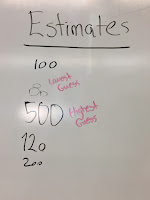 Estimates
100
80 Lowest Guess
500 Highest Guess
120
200